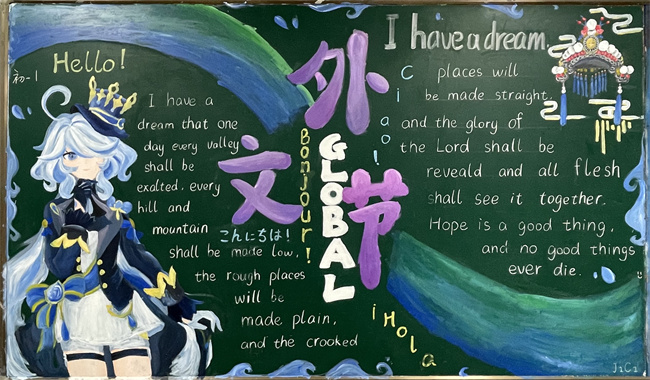 Hello!
初-1
I have a
dream that one
day every valley
shall be
exalted. every
hill and
mountain
shall be made low,
the rough places
will be
made plain,
and the crooked
外
文
节
こんにちは!
Bonjour!
GLOBAL
¡Hola
Ciao!
I have a dream.
places will
be made straight.
and the glory of
the Lord shall be
reveald and all flesh
shall see it together.
Hope is a good thing,
and no good things
ever die.
J1C1